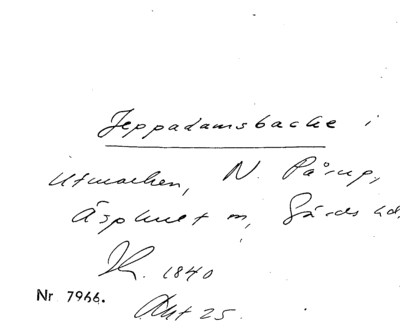 Jeppadamsbacke i
utmarken, N. Pårup,
Äsphult sn, Gärds hd,
Sk. 1840
Nr 7966. Akt 25.